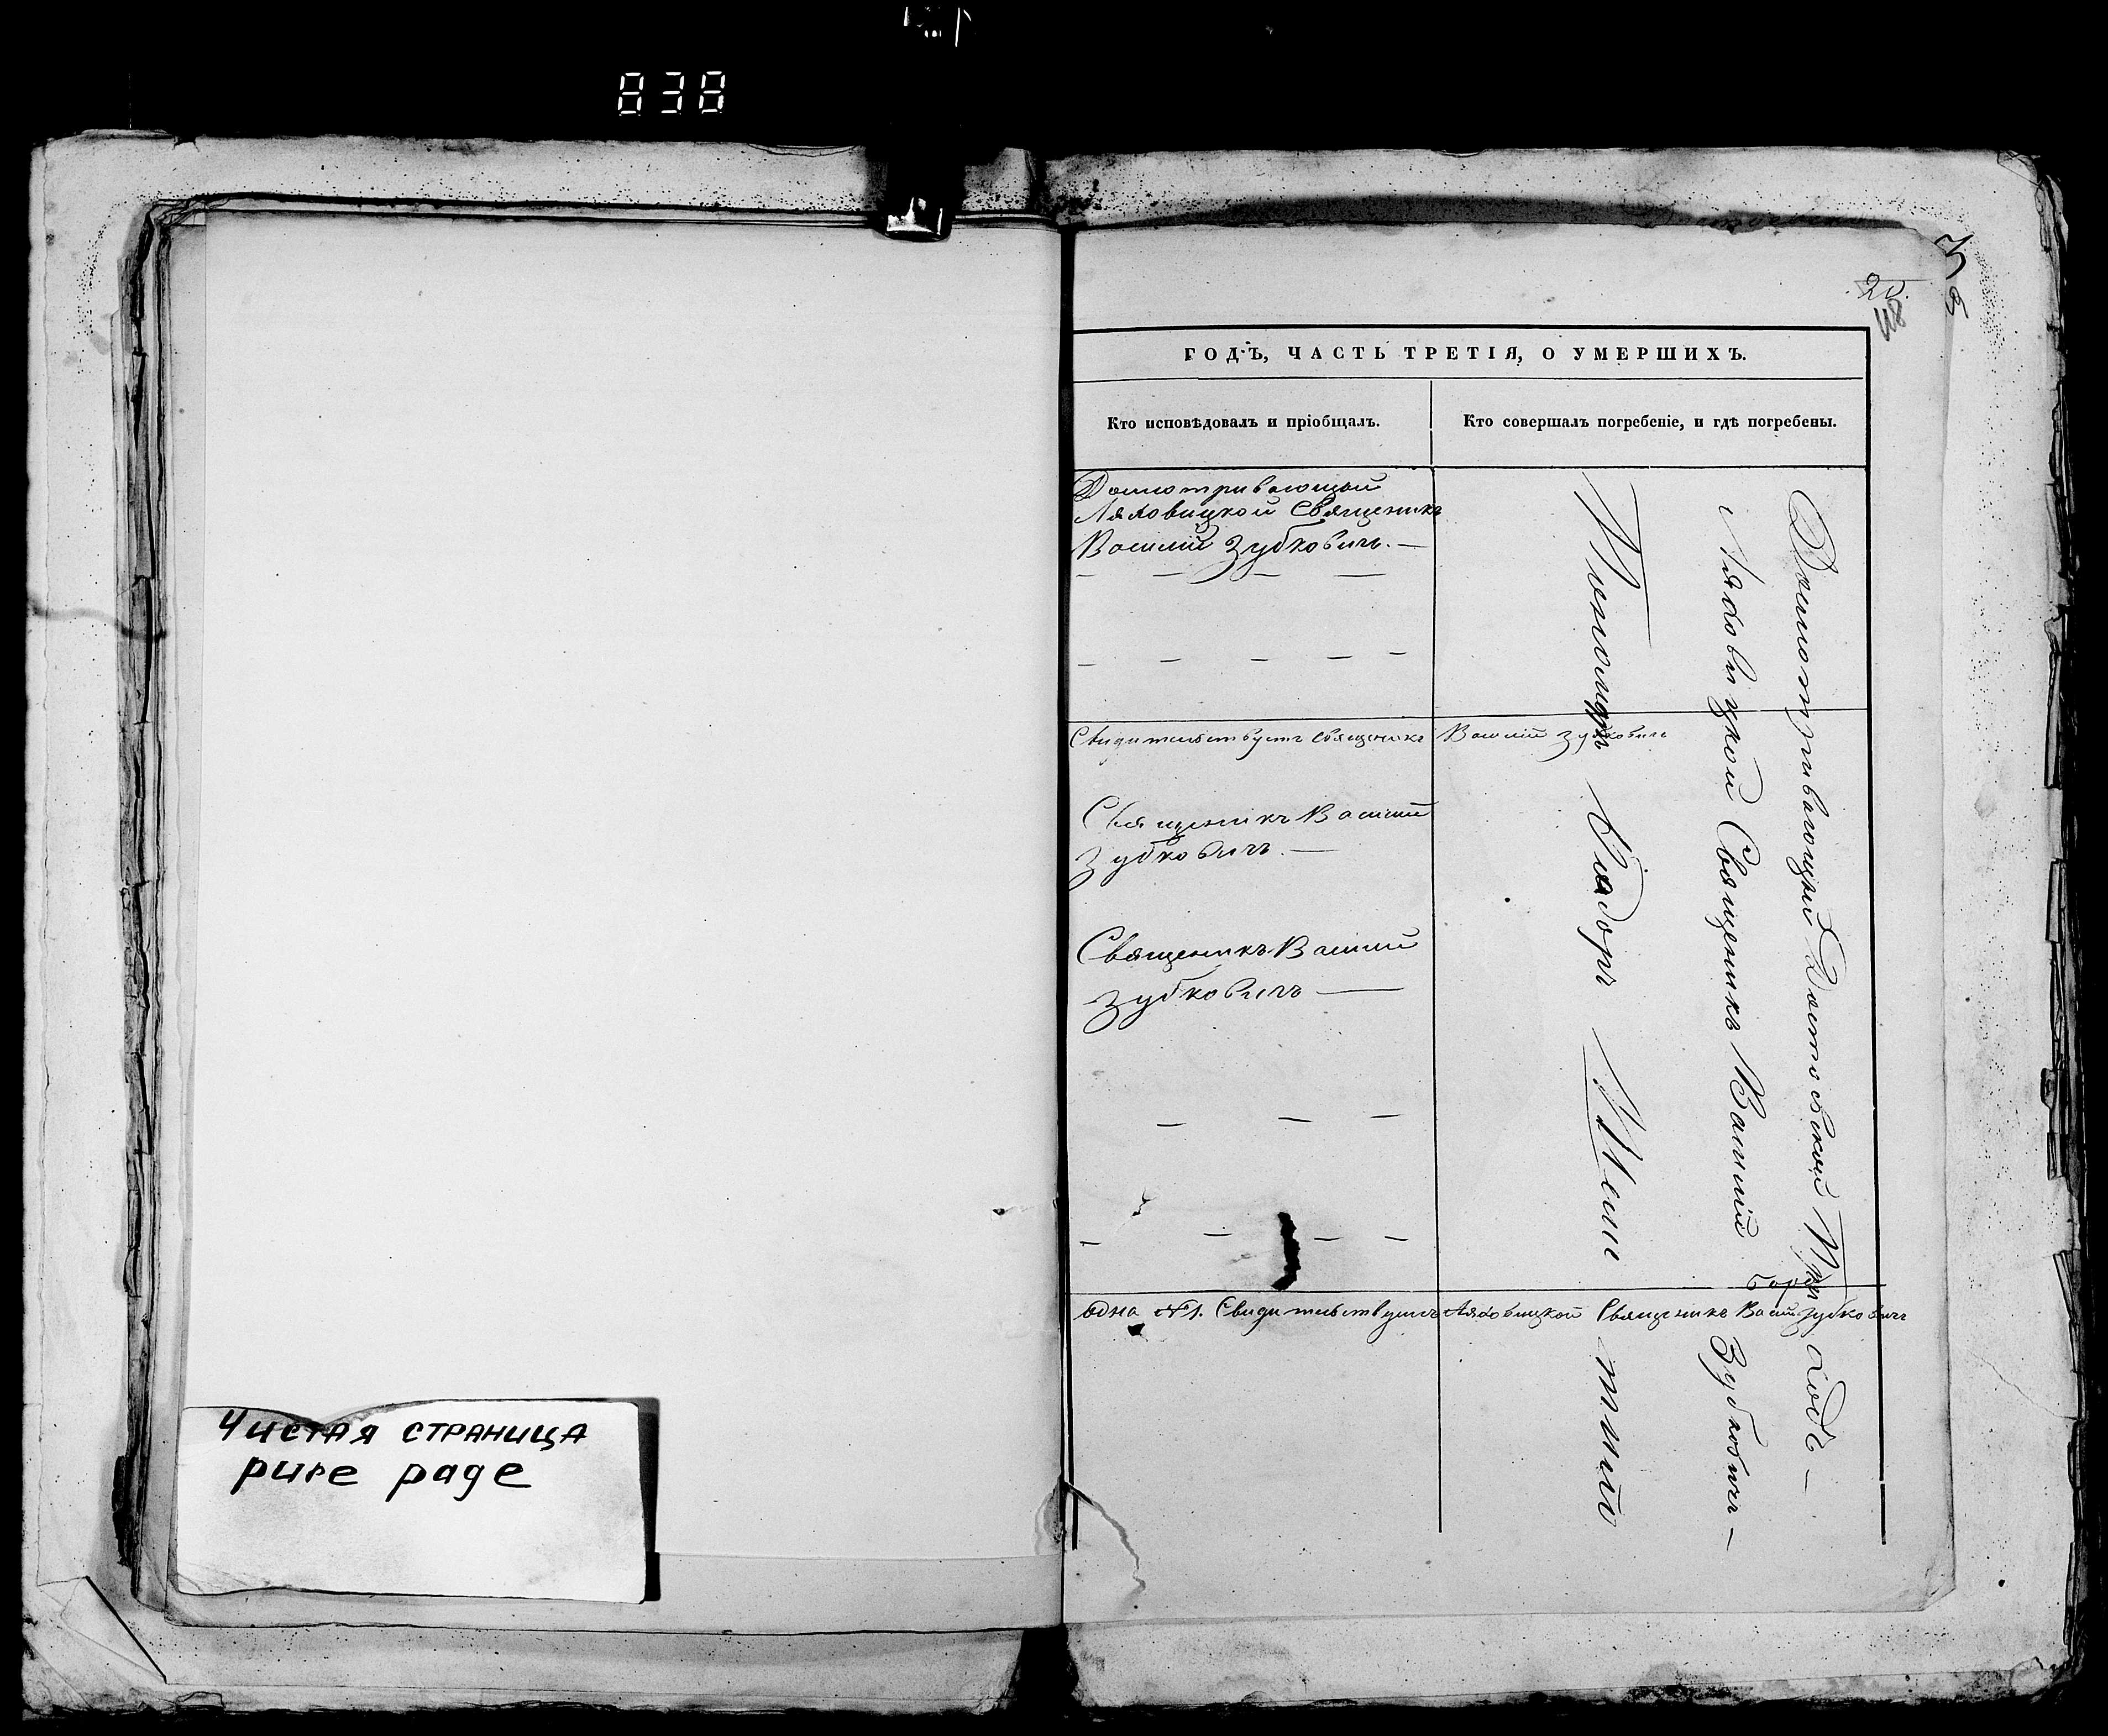 838
20.
48
ГОДЪ, ЧАСТЬ ТРЕТІЯ, О УМЕРШИХЪ.
Кто исповѣдовалъ и пріобщалъ.
Кто совершалъ погребеніе, и гдѣ погребены.
Досмотривающій
Ляховицкой Священикъ
Василій Зубковичъ. —
Свидительствуетъ Священикъ Василій Зубковичъ
Священикъ Василій
Зубковичъ. —
Священикъ Василій
Зубковичъ —
одна №1. Свидительствуетъ Ляховицкой Священикъ Васи Зубковичъ
Досмотривающій Достоевской
Ляховицкой Священикъ Василій Зубковичъ —
Чистая страница
pure page